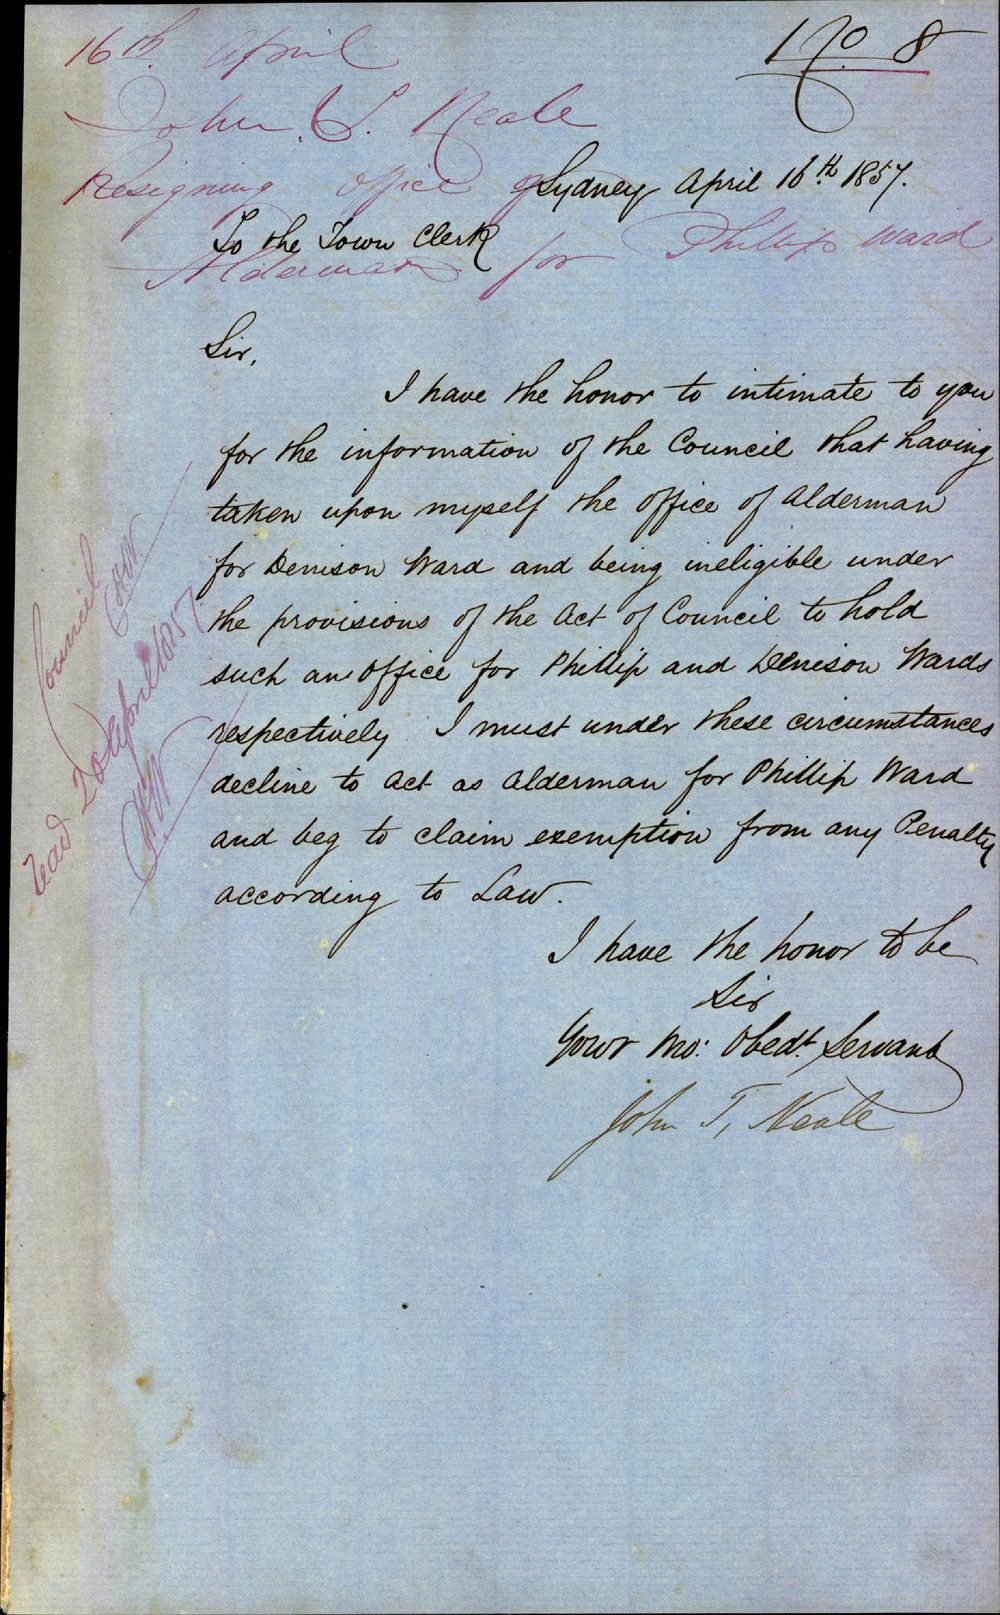 No 8
16th April
John T. Neale
Resigning office of
Alderman for Phillip Ward
Sydney April 16th 1857.
To the Town Clerk
Sir,
I have the honor to intimate to you
for the information of the Council that having
taken upon myself the office of Alderman
for Denison Ward and being ineligible under
the provisions of the Act of Council to hold
such an office for Phillip and Denison Wards
respectively I must under these circumstances
decline to act as Alderman for Phillip Ward
and beg to claim exemption from any Penalty
according to Law.
I have the honor to be
Sir
Your Mo: Obedt. Servant
John T, Neale
Council
read 20 April 1857